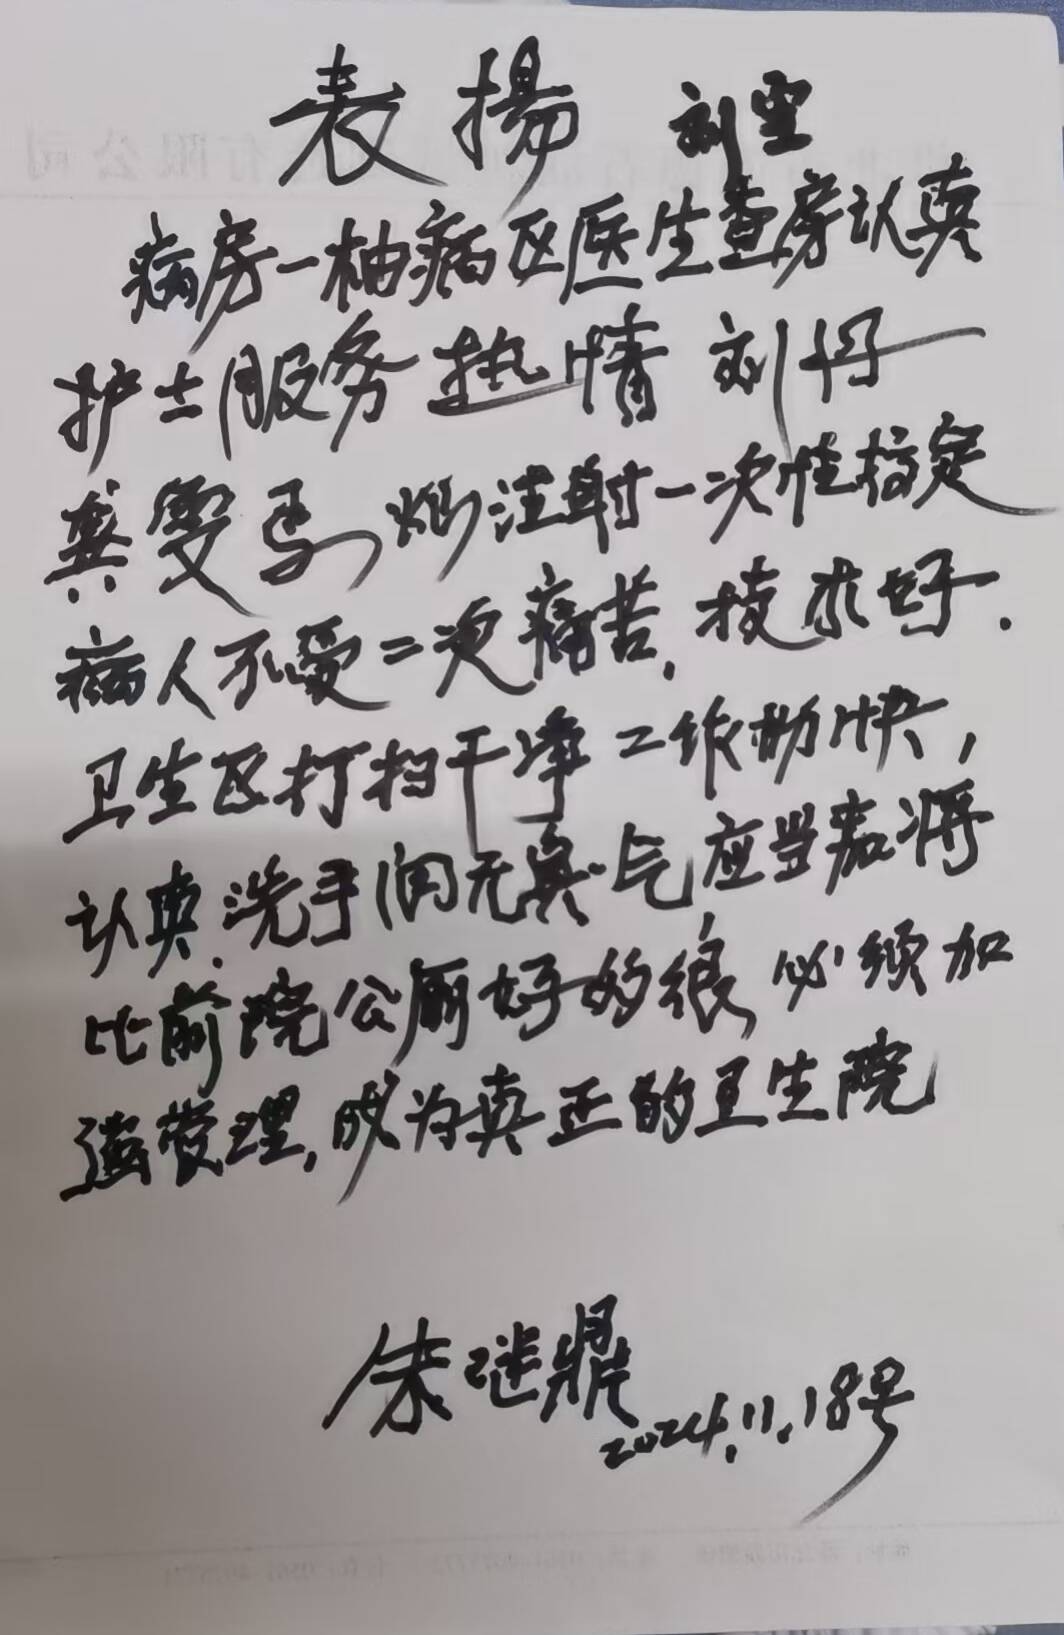 表揚 刘雪
病房一柚病区医生查房认真
护士服务热情 刘丹
龚雯 马灿注射一次性搞定
病人不受二次痛苦,技术好.
卫生区打扫干净 工作勤快,
认真.洗手间无臭气应当嘉
比前院公厕好的很 必须加
强管理,成为真正的卫生院
朱继鼎
2024.11.18号